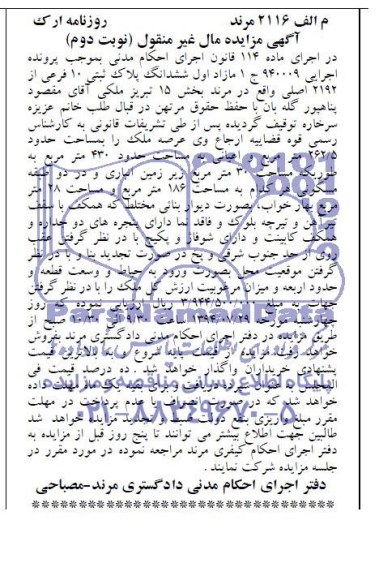 م الف ۲۱۱۶ مرند روزنامه ارک
آگهی مزایده مال غیر منقول (نوبت دوم)
در اجرای ماده ۱۱۴ قانون اجرای احکام مدنی بموجب پرونده
اجرایی ۹۴۰۰۰۹ ج ۱ مازاد اول ششدانگ پلاک ثبتی ۱۰ فرعی از
۲۱۹۲ اصلی واقع در مرند بخش ۱۵ تبریز ملکی آقای مقصود
پناهپور گله بان با حفظ حقوق مرتهن در قبال طلب خانم عزیزه
سرخاره توقیف گردیده پس از طی تشریفات قانونی به کارشناس
رسمی قوه قضاییه ارجاع وی عرصه ملک را بمساحت حدود
۲۶۲/۵ متر مربع اعیانی مساحت حدود ۴۳۰ متر مربع به
طوریکه مساحت ۳۰ متر مربع زیر زمین انباری و در دو طبقه
مسکونی هر کدام به مساحت ۱۸۶ متر مربع مساحت ۲۸ متر
مربع بهار خواب بصورت دیوار بتائی مختلط که همکف با سقف
تیرآهن و تیرچه بلوک و فاقد نما دارای پنجره های دو جداره و
همکف کابینت و دارای شوفاژ و پکیج با در نظر گرفتن عقب
روی از حد جنوب شرقی و پخ در صورت تجدید بنا و با در نظر
گرفتن موقعیت محل بصورت ورود به حیاط و وسعت قطعه و
حدود اربعه و میزان مرغوبیت ارزش کل ملک را با در نظر گرفتن
جهات به مبلغ ۳/۹۴۴/۵۰۰/۰۰۰ ریال ارزیابی نموده که روز
چهارشنبه مورخه ساعت ۹/۳۰ الی ۱۰/۳۰ صبح از
طریق مزایده در دفتر اجرای احکام مدنی دادگستری مرند بفروش
خواهد رفت مزایده از قیمت پایه شروع و به بالاترین قیمت
پیشنهادی خریداران واگذار خواهد شد. ده درصد قیمت فی
المجلس از برنده دریافت و مابقی یک ماه مهلت داده
خواهد شد که در صورت انصراف یا عدم پرداخت در مهلت
مقرر مبلغ واریزی بنفع دولت ضبط و تجدید مزایده خواهد شد
طالبین جهت اطلاع بیشتر می توانند تا پنج روز قبل از مزایده به
دفتر اجرای احکام کیفری مرند مراجعه نموده در مورد مقرر در
جلسه مزایده شرکت نمایند.
دفتر اجرای احکام مدنی دادگستری مرند-مصباحی
ParsNamadData
پایگاه اطلاع رسانی مناقصه و مزایده
۰۲۱-۸۸۳۴۹۶۷۰-۵